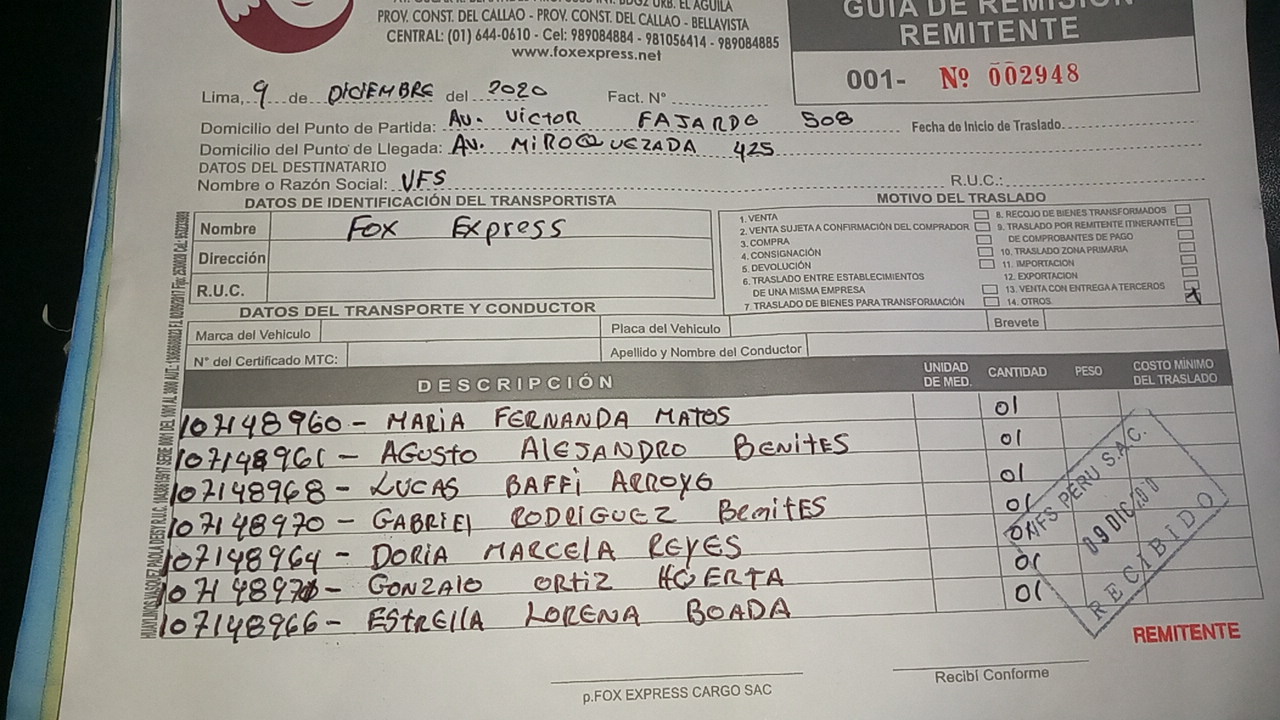 PROV. CONST. DEL CALLAO - PROV. CONST. DEL CALLAO - BELLAVISTA
CENTRAL: (01) 644-0610 - Cel: 989084884 - 981056414 - 989084885
www.foxexpress.net
GUÍA DE REMISIÓN
REMITENTE
001- Nº 002948
Lima, 9 de DICIEMBRE del 2020 Fact. N°
Domicilio del Punto de Partida: Av. Victor FAJARDO 508 Fecha de Inicio de Traslado
Domicilio del Punto de Llegada: Av. MIROQUEZADA 425
DATOS DEL DESTINATARIO
Nombre o Razón Social: VFS R.U.C.:
DATOS DE IDENTIFICACIÓN DEL TRANSPORTISTA
Nombre Fox Express
Dirección
R.U.C.
MOTIVO DEL TRASLADO
1. VENTA
2. VENTA SUJETA A CONFIRMACIÓN DEL COMPRADOR
3. COMPRA
4. CONSIGNACIÓN
5. DEVOLUCIÓN
6. TRASLADO ENTRE ESTABLECIMIENTOS
DE UNA MISMA EMPRESA
7. TRASLADO DE BIENES PARA TRANSFORMACIÓN
8. RECOJO DE BIENES TRANSFORMADOS
9. TRASLADO POR REMITENTE ITINERANTE
DE COMPROBANTES DE PAGO
10. TRASLADO ZONA PRIMARIA
11. IMPORTACION
12. EXPORTACION
13. VENTA CON ENTREGA A TERCEROS
14. OTROS X
DATOS DEL TRANSPORTE Y CONDUCTOR
Marca del Vehiculo Placa del Vehiculo Brevete
N° del Certificado MTC: Apellido y Nombre del Conductor
DESCRIPCIÓN UNIDAD DE MED. CANTIDAD PESO COSTO MÍNIMO DEL TRASLADO
107148960 - MARIA FERNANDA MATOS 01
107148961 - AGUSTO ALEJANDRO BENITES 01
107148968 - LUCAS BAFFI ARROYO 01
107148970 - GABRIEL RODRIGUEZ BENITES 01
107148964 - DORIA MARCELA REYES 01
GONZALO ORTIZ HUERTA 01
107148966 - ESTRELLA LORENA BOADA 01
VFS PERU S.A.C.
RECIBIDO
REMITENTE
p.FOX EXPRESS CARGO SAC
Recibí Conforme